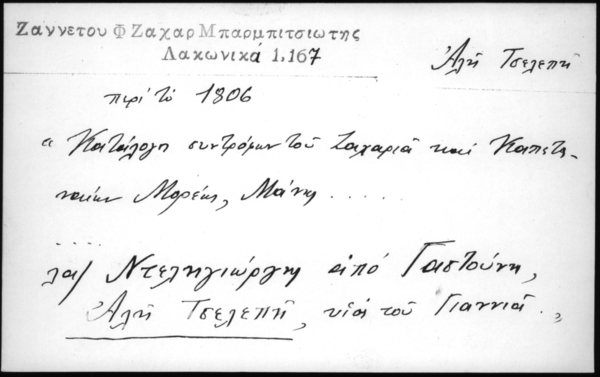 Ζαννετου Φ Ζαχαρ Μπαρμπιτσιωτης
Λακωνικά 1.167
Ἀλῆ Τσελεπῆ
περὶ τὸ 1806
"Κατάλογη συντρόφων τοῦ Ζαχαριᾶ καὶ Καπετα-
ναίων Μορέως, Μάνης .....
....
λα) Ντεληγιώργης ἀπό Γαστούνη,
Ἀλῆ Τσελεπῆ, υἱὸς τοῦ Γιαννιᾶ."